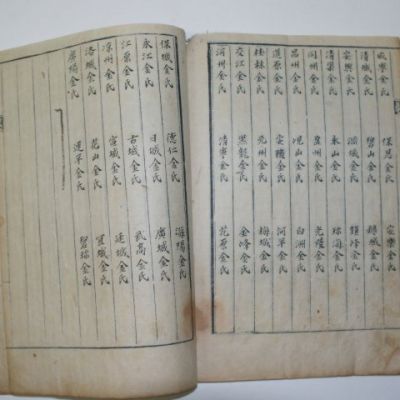 金氏 保恩金氏 安樂金氏
清城金氏 碧山金氏 金氏
安興金氏 城金氏 金氏
清渠金氏 永山金氏 珍海金氏
開州金氏 豊州金氏 光金氏
昌州金氏 峴山金氏 白洲金氏
道原金氏 安金氏 河平金氏
桂林金氏 光州金氏 梅城金氏
交江金氏 黑龍金氏 金峰金氏
河州金氏 清寧金氏 花原金氏
保城金氏 德仁金氏 海陽金氏
永江金氏 日城金氏 廣城金氏
江原金氏 古城金氏 武高金氏
凉州金氏 宣城金氏 延城金氏
洛城金氏 花山金氏 城金氏
廣陽金氏 延平金氏 碧珍金氏